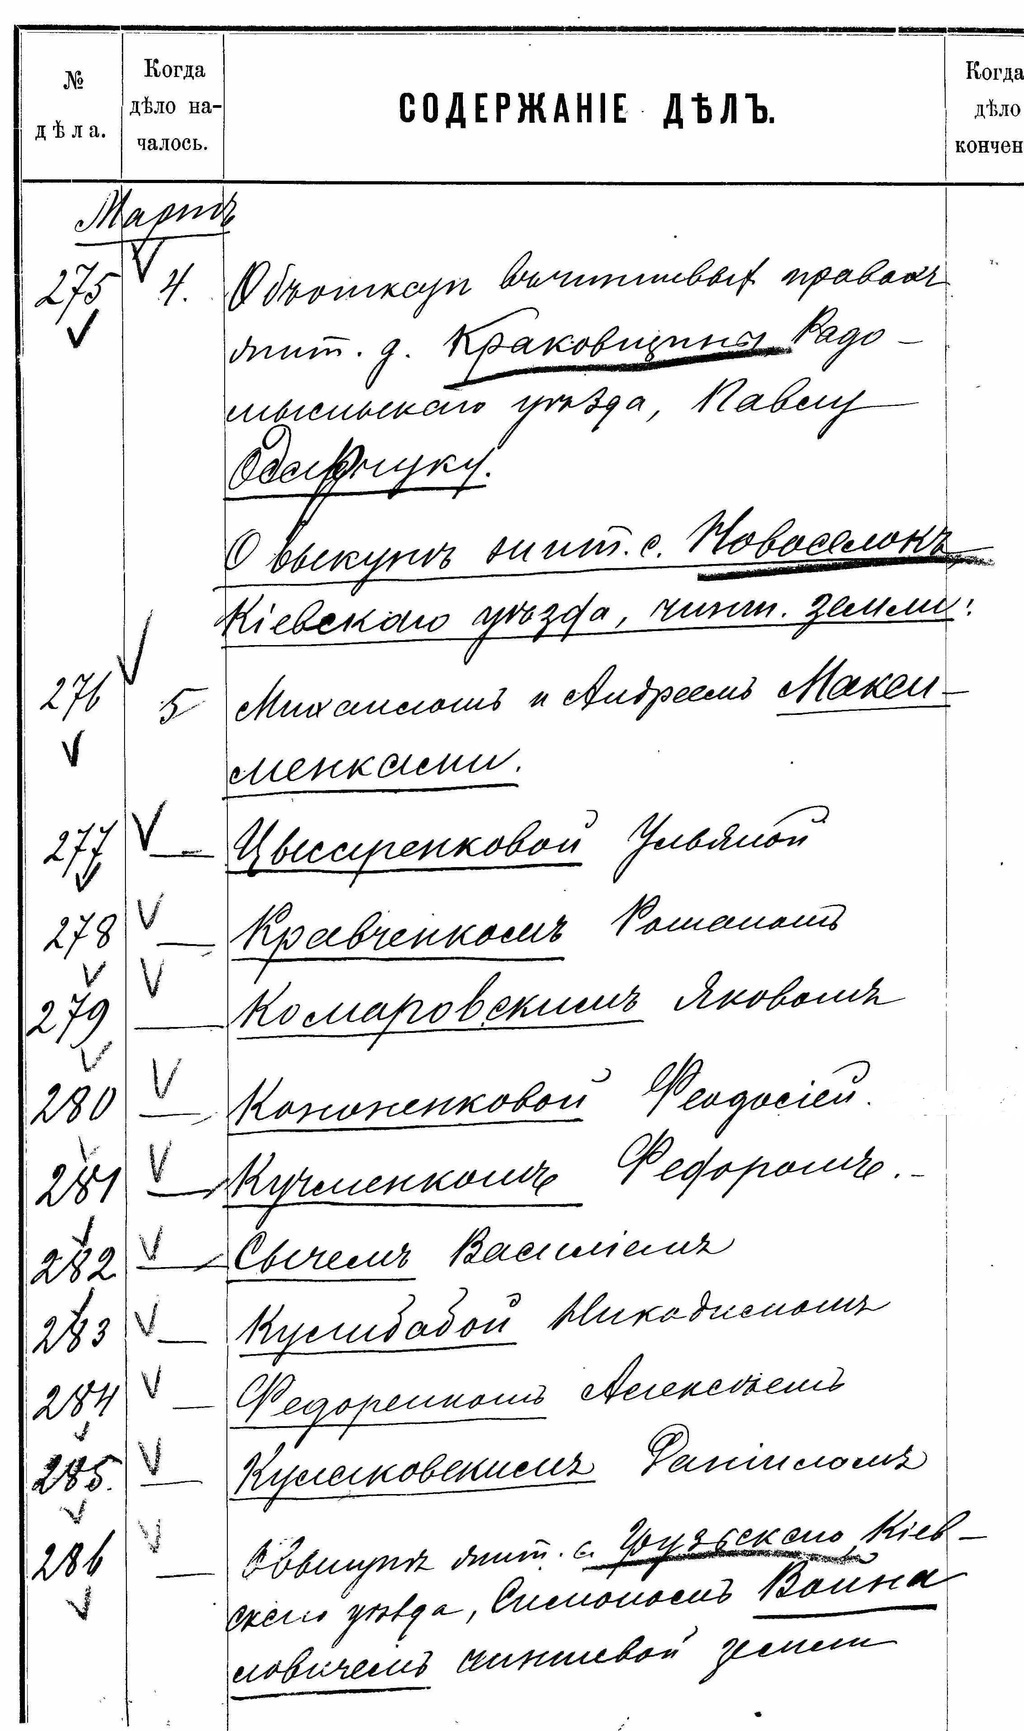 № дѣла.
Когда дѣло началось.
СОДЕРЖАНІЕ ДѢЛЪ.
Когда дѣло кончен
Мартъ
275 4. Объ отказѣ въ чиншевыхъ правахъ
жит. д. Краковщины Радо-
мысльскаго уѣзда, Павлу
О выкупѣ жит. с. Новоселокъ,
Кіевскаго уѣзда, чинш. земли:
276 5 Михаиломъ и Андреемъ Макси-
менками.
277 — Цымаренковой Ульяной
278 — Кравченкомъ Романомъ
279 — Комаровскимъ Яковомъ
280 — Кононенковой Феодосіей.
281 — Кучменкомъ Федоромъ. -
282 — Сычемъ Василіемъ
283 — Кулибабой Никодимомъ
284 — Федоренкомъ Алексѣемъ
285. — Кулаковскимъ Даніиломъ
286 — О выкупѣ жит. с. Грузскаго, Кіев-
скаго уѣзда, Симономъ Война
ловичемъ чиншевой земли